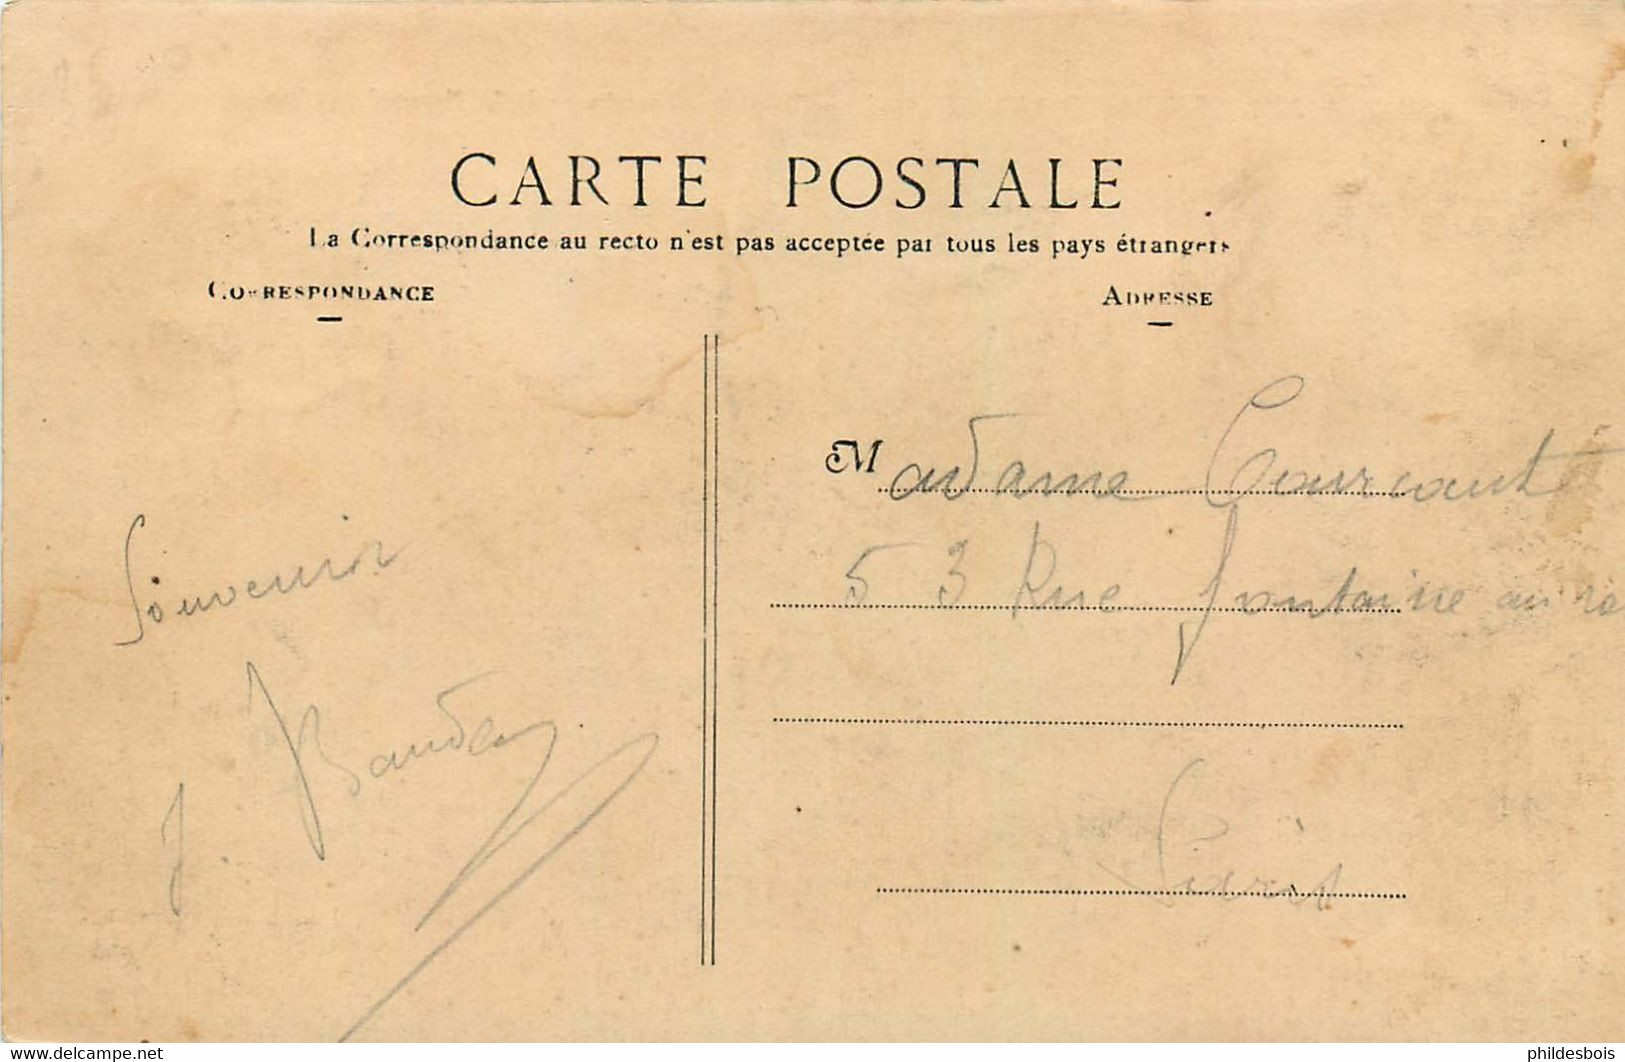 CARTE POSTALE
La Correspondance au recto n'est pas acceptée par tous les pays étrangers
CORRESPONDANCE
ADRESSE
Madame
53 Rue Fontaine au
Paris
Souvenir
J.
www.delcampe.net
phildesbois